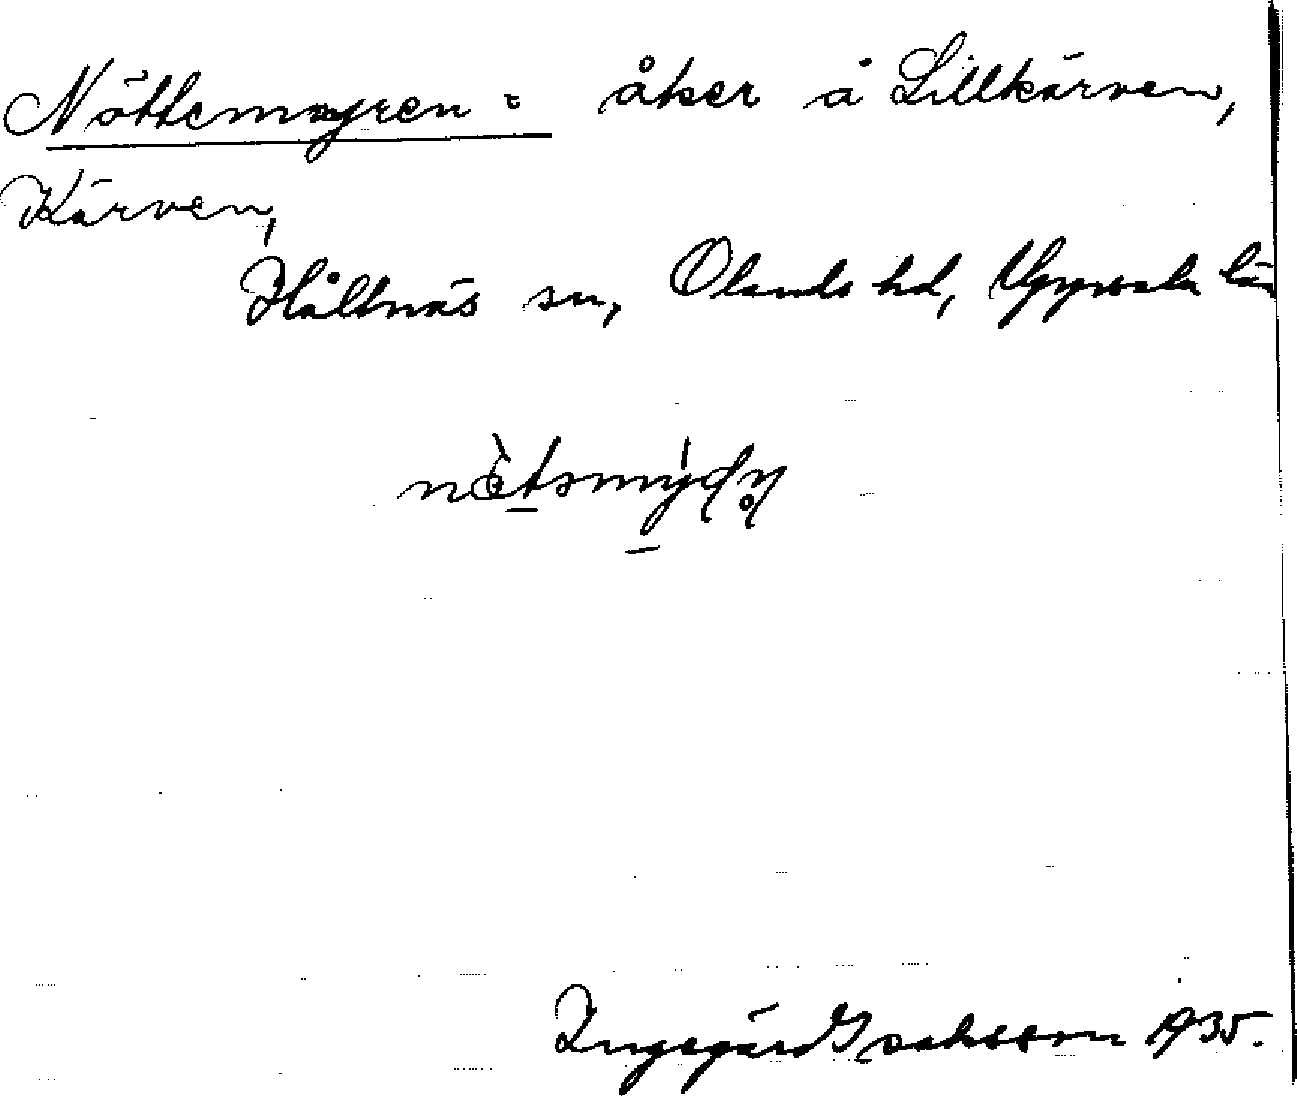 Nöttemyren: åker å Lillkärven,
Kärven,
Hållnäs sn, Olands hd, Uppsala län
Ingegärd Isaksson 1935.